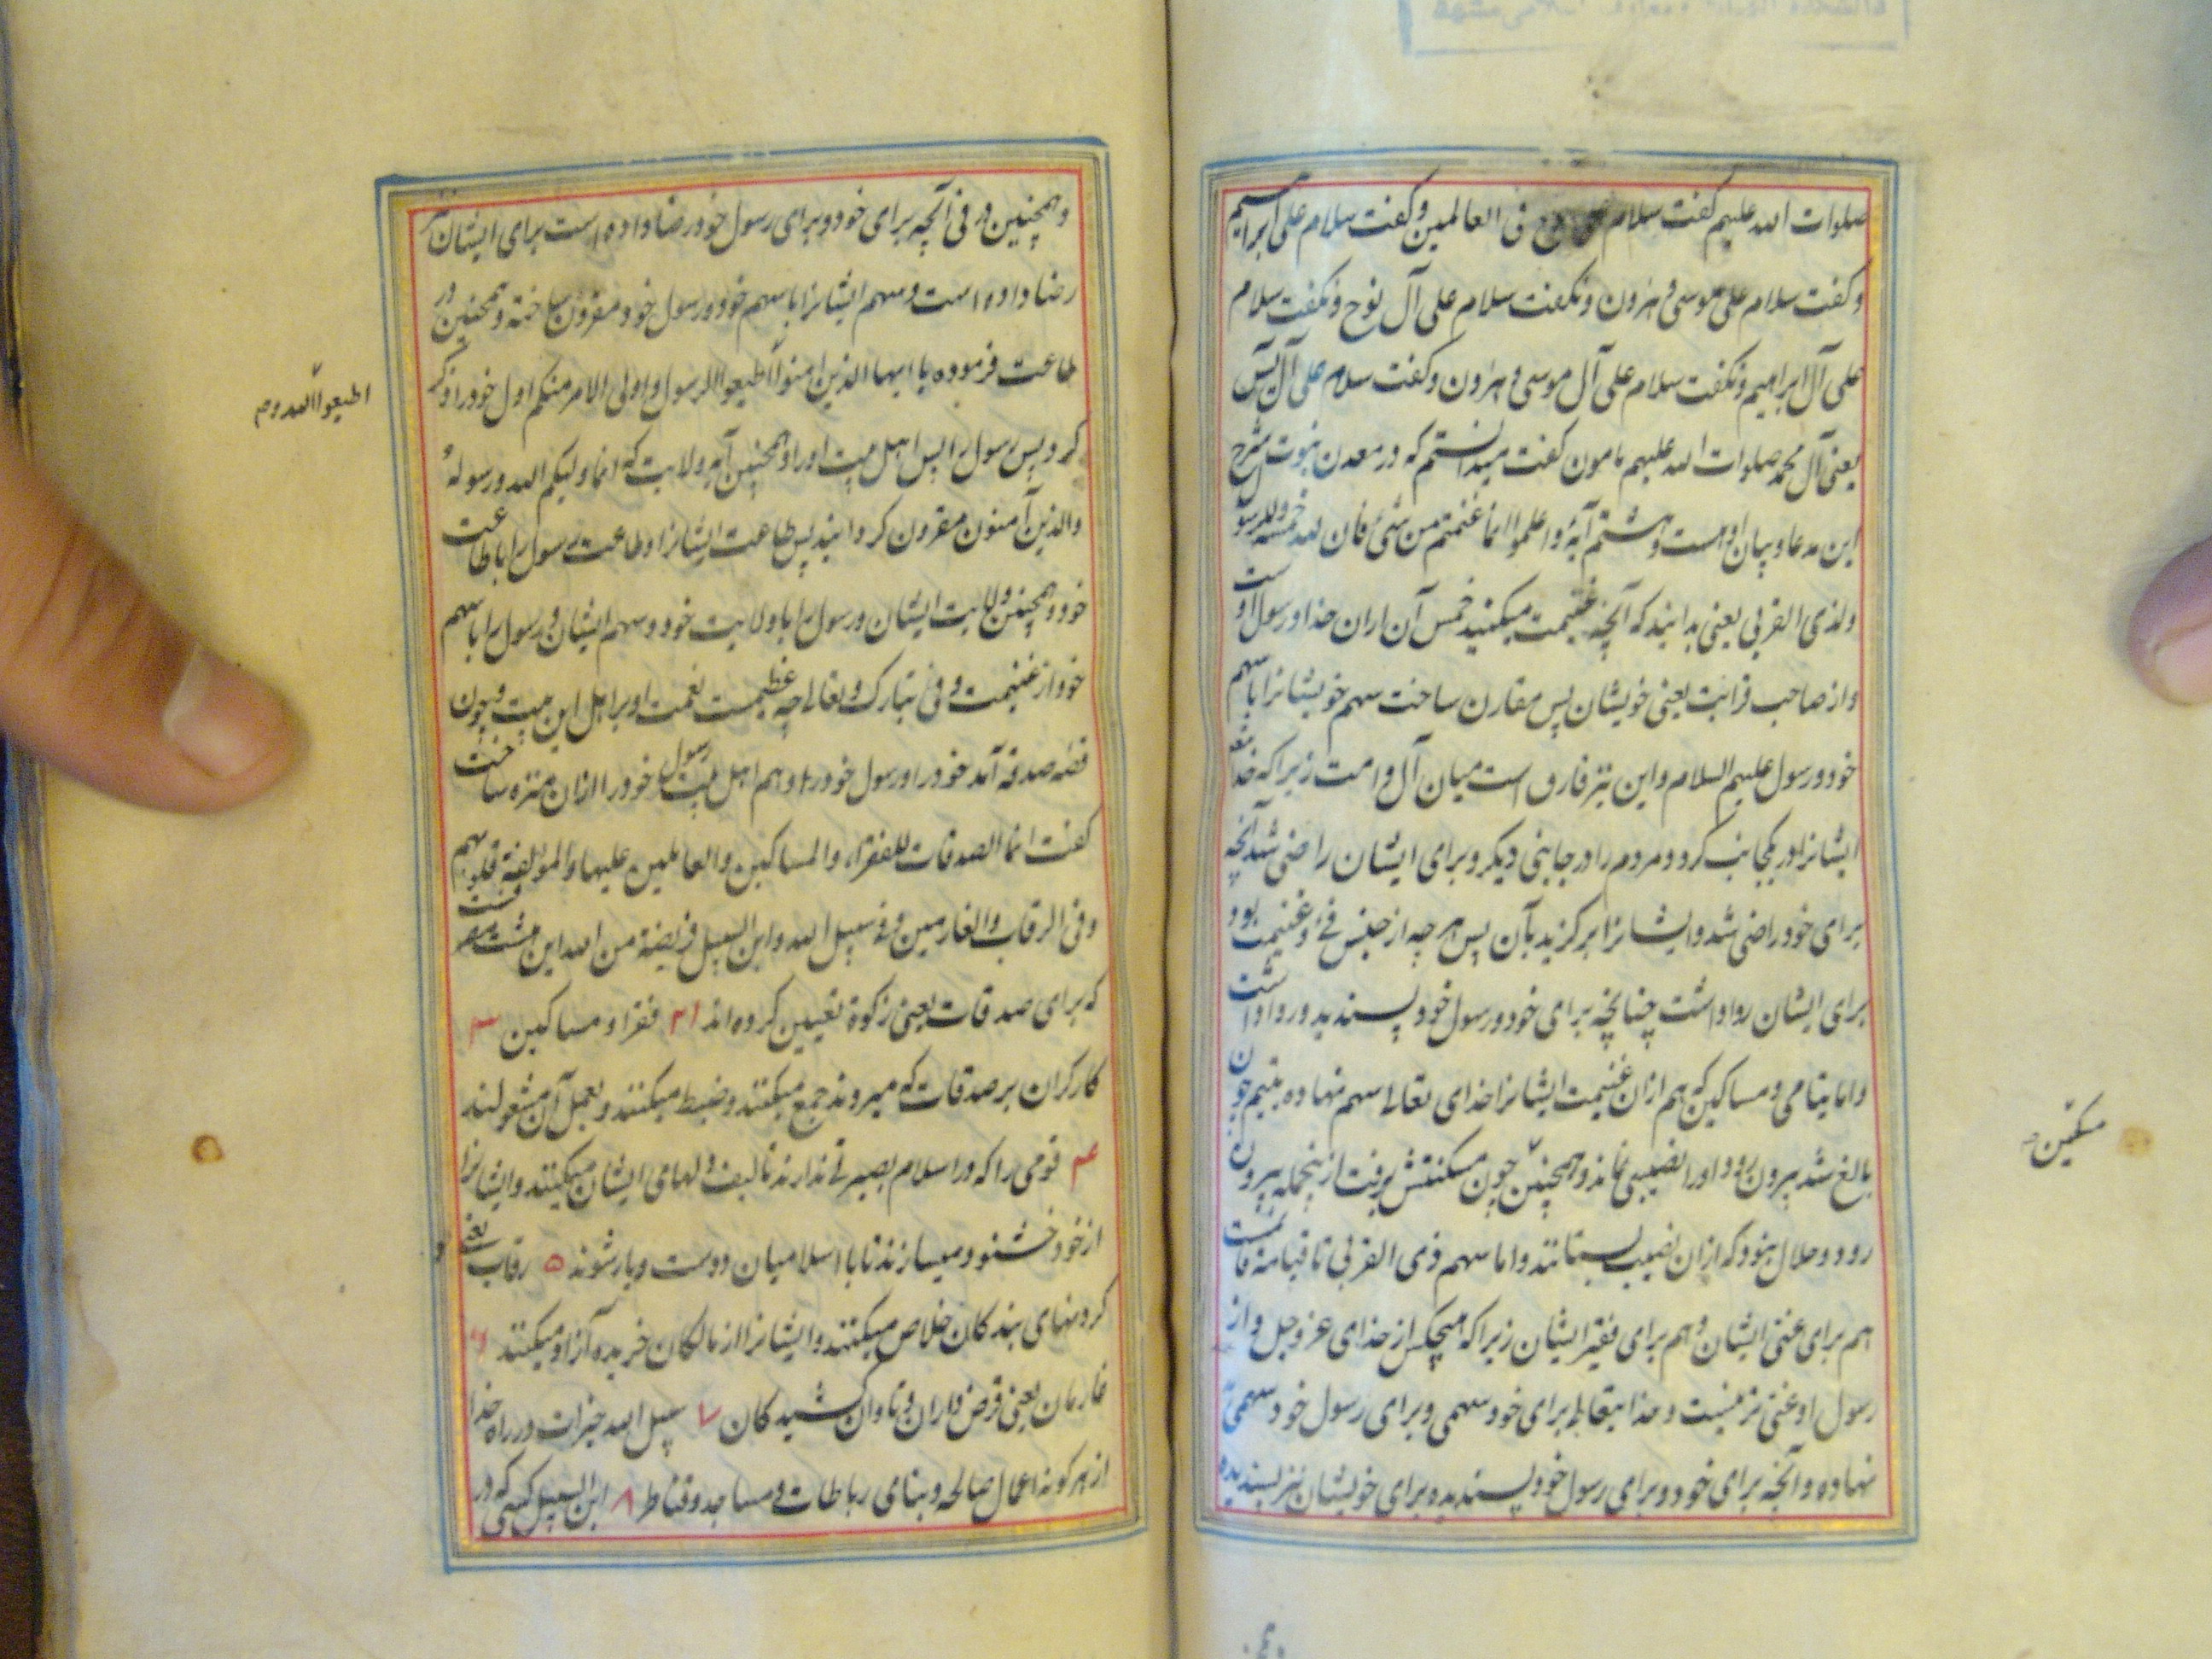 صلوات الله علیهم کفت سلام علی نوح فی العالمین و کفت سلام علی ابراهیم
و کفت سلام علی موسی و هرون و نکفت سلام علی آل نوح و نکفت سلام
علی آل ابراهیم و نکفت سلام علی آل موسی و هرون و کفت سلام علی آل یس
یعنی آل محمد صلوات الله علیهم مامون کفت میدانستم که در معدن نبوت شرح
این مدعا و بیان او هست و هشتم آیهٔ و اعلموا انما غنمتم من شئ فان لله خمسه و للرسول
ولذی القربی یعنی بدانید که آنچه غنیمت میکنید خمس آن ازان خدا و رسول اوست
و از صاحب قرابت یعنی خویشان پس مقارن ساخت سهم خویشانرا با سهم
خود و رسول علیهم السلام و این نیز فارق است میان آل و امت زیرا که خدا
ایشانرا در یکجانب کرد و مردم را در جانبی دیکر و برای ایشان راضی شد آنچه
برای خود راضی شد و ایشانرا برکزید بآن پس هر چه از جنس فئ و غنیمت بود
برای ایشان روا داشت چنانچه برای خود و رسول خود پسندید و روا داشت
و اما یتامی و مساکین که هم ازان غنیمت ایشانرا خدای تعالی سهم نهاده یتیم چون
بالغ شد بیرون رود و اورا نصیبی نماند و همچنین چون مسکنتش برفت ازینجمله بیرون
رود و حلال نبود که ازان نصیب بستانند و اما سهم ذی القربی تا قیامة قائمست
هم برای غنی ایشان و هم برای فقیر ایشان زیرا که هیچکس از خدای عز و جل و از
رسول او غنی تر نیست و خدا یتعالی برای خود سهمی و برای رسول خود سهمی
نهاده و آنچه برای خود و برای رسول خود پسندیده برای خویشان نیز پسندیده
مسکین
و همچنین در فئ آنچه برای خود و برای رسول خود رضا داده است برای ایشان
رضا داده است و سهم ایشانرا با سهم خود و رسول خود مقرون ساخته و همچنین در
طاعت فرموده یا ایها الذین امنوا اطیعوا الرسول و اولی الامر منکم اول خود را ذکر
اطیعوا الله و
کرد پس رسول را پس اهل بیت اورا و همچنین آیهٔ ولایت که انما ولیکم الله و رسوله
والذین آمنون مقرون کردانید پس طاعت ایشانرا و طاعت رسول را با طاعت
خود و همچنین ولایت ایشان و رسول را با ولایت خود و سهم ایشان و رسول را با سهم
خود از غنیمت و فئ تبارک و تعالی چه عظیمست نعمت او بر اهل این بیت و چون
قصهٔ صدقه آمد خود را و رسول خود را و هم اهل بیت رسول خود را ازان منزه ساخت
کفت انما الصدقات للفقراء والمساکین والعاملین علیها والمؤلفة قلوبهم
و فی الرقاب والغارمین و فی سبیل الله وابن السبیل فریضة من الله این هشت مصرفست
که برای صدقات یعنی زکوة تعیین کرده اند ۱ ۲ فقرا و مساکین ۳
کارکران بر صدقات که میروند جمع میکنند و ضبط میکنند و بعمل آن مشغولند
۴ قومی را که در اسلام بصیرتی ندارند تالیف دلهای ایشان میکنند و ایشانرا
از خود خشنود میسازند تا با اسلامیان دوست و یار شوند ۵ رقاب یعنی
کردنهای بندکان خلاص میکنند و ایشانرا از مالکان خریده آزاد میکنند ۶
غارمان یعنی قرض داران و تاوان کشیدکان ۷ سبیل الله خیرات در راه خدا
از هر کونه اعمال صالحه و بنای رباطات و مساجد و قناطر ۸ ابن السبیل کسی که در